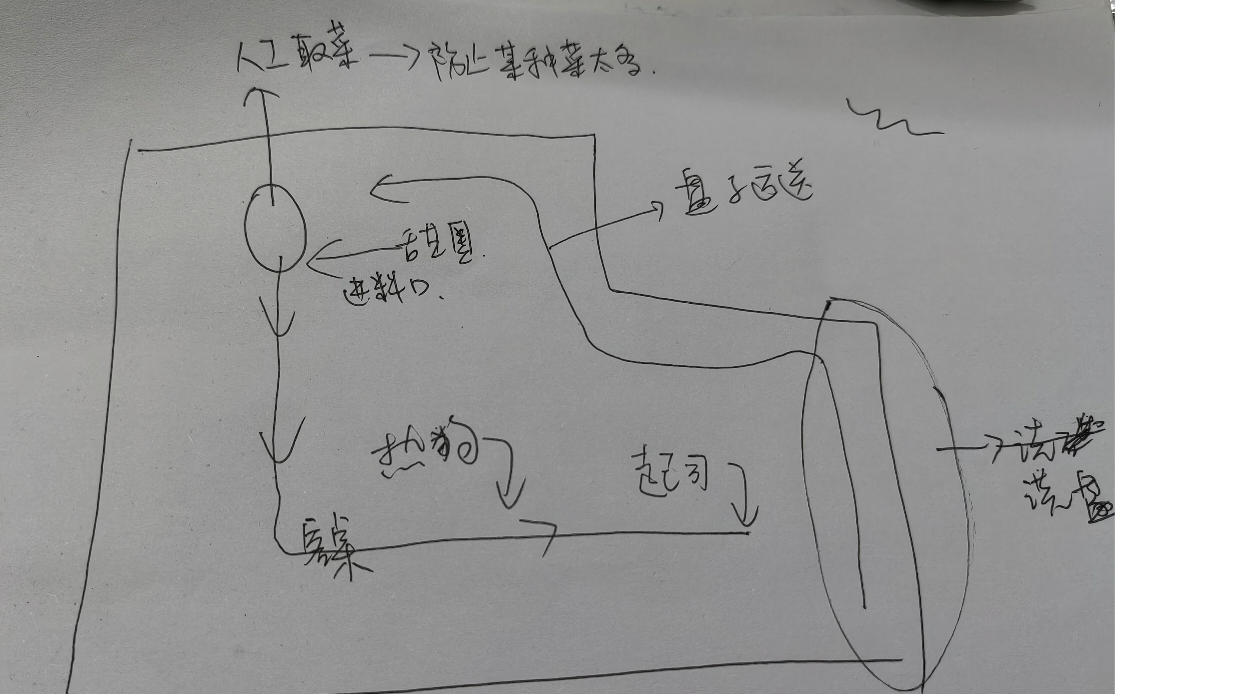 人工取菜 → 防止某种菜太多.
盘子运送
进料口.
热狗
起司
洗盘